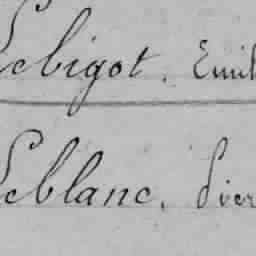 Lebigot. Emil
Leblanc. Pier